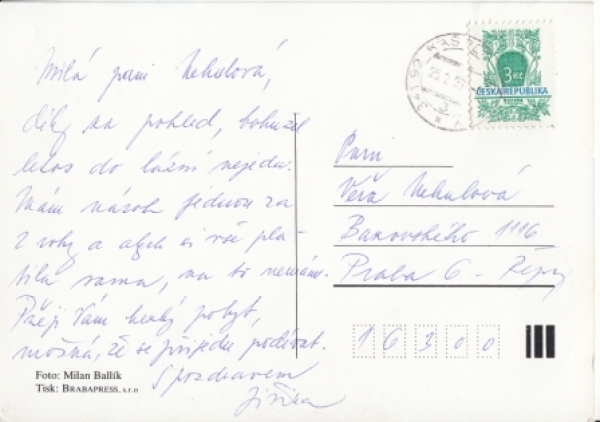 Milá paní Nekulová,
díky za pohled, bohužel
letos do lázní nejedu.
Mám nárok jednou za
2 roky a abych si vše pla-
tila sama, na to nemám.
Přeji Vám hezký pobyt,
možná, že se přijedu podívat.
S pozdravem
Jiřina
Foto: Milan Ballík
Tisk: BRABAPRESS, s.r.o
3 Kč
ČESKÁ REPUBLIKA
341 92
3
Paní
Věra Nekulová
Bazovského 1116
Praha 6 - Řepy
16300